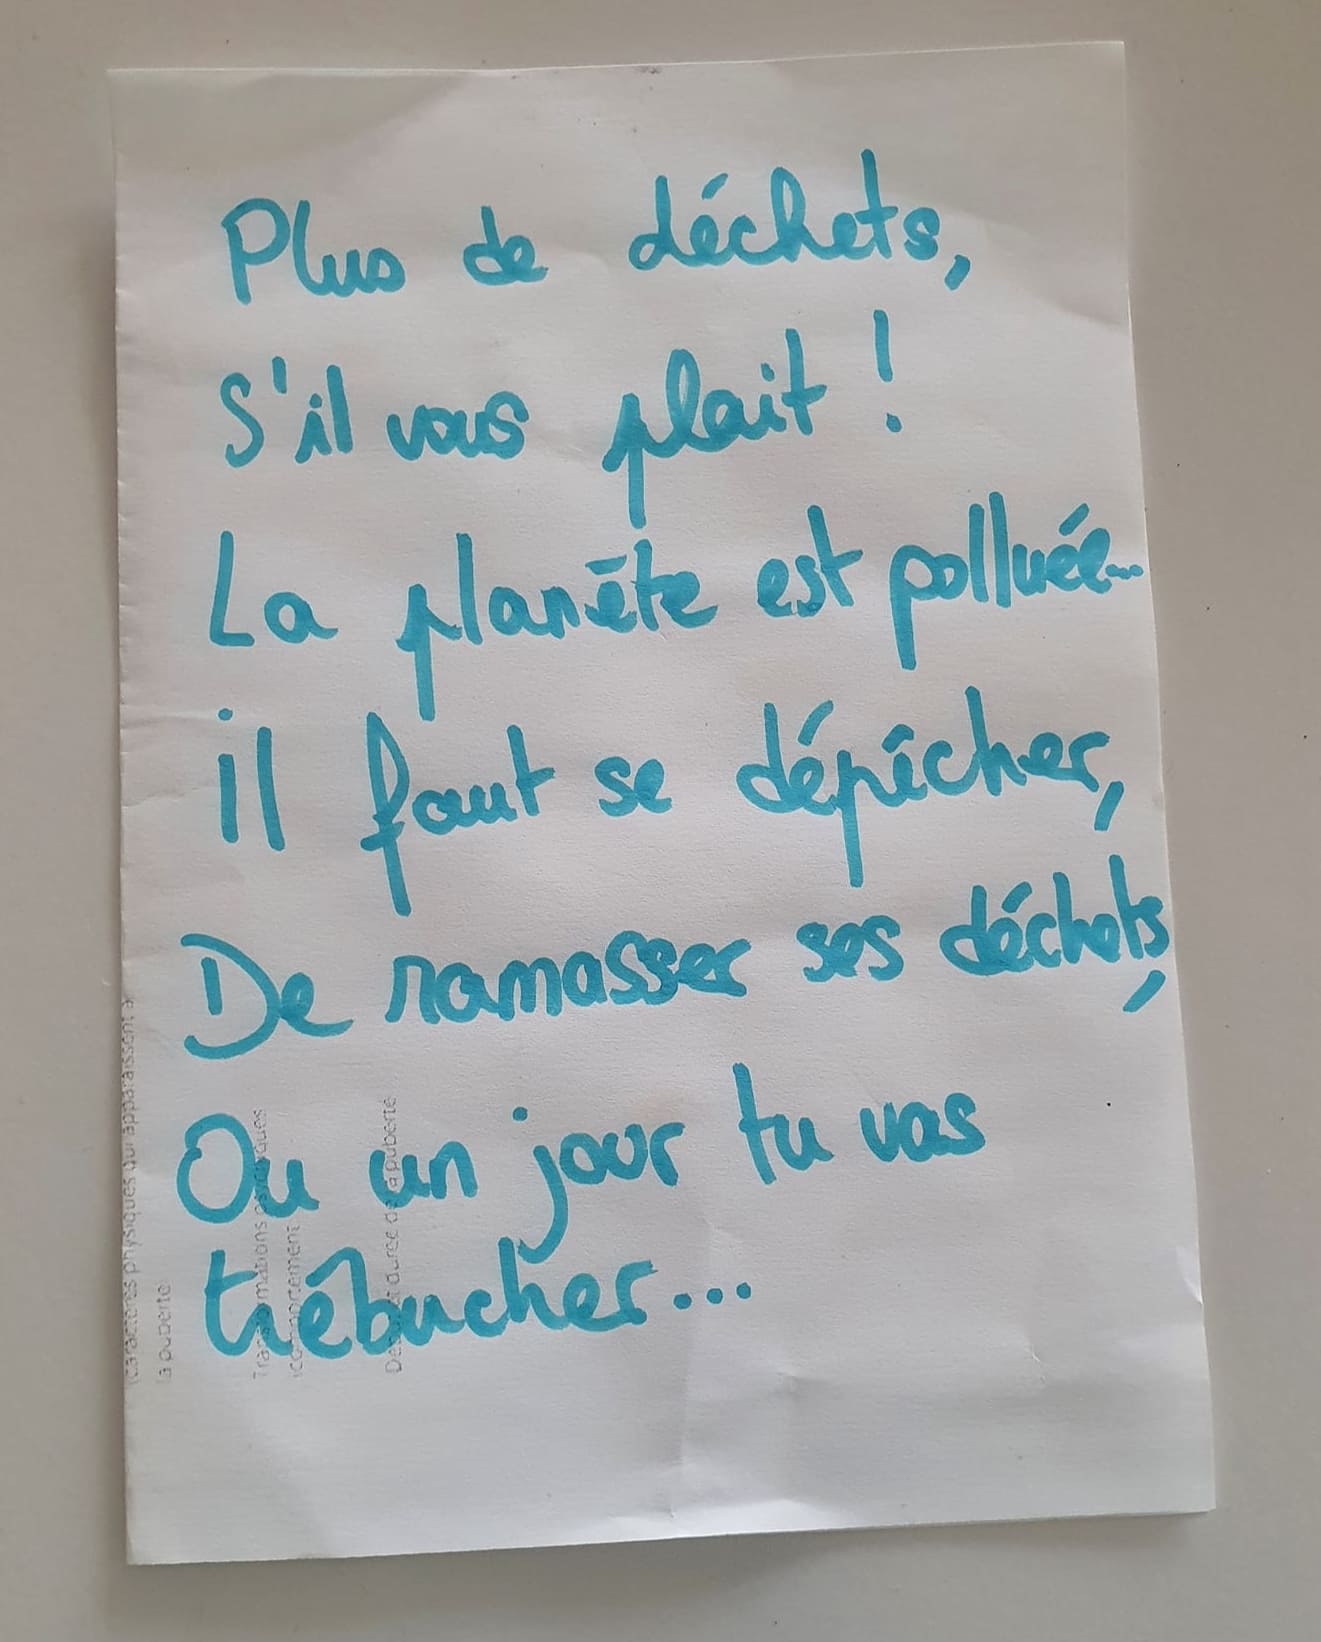 Plus de déchets,
S'il vous plait !
La planête est polluée...
il faut se dépêcher,
De ramasser ses déchets,
Ou un jour tu vas
trébucher...
caractères physiques qui apparaissent à
la puberté
Transformations psychiques
commencement
Début et durée de la puberté